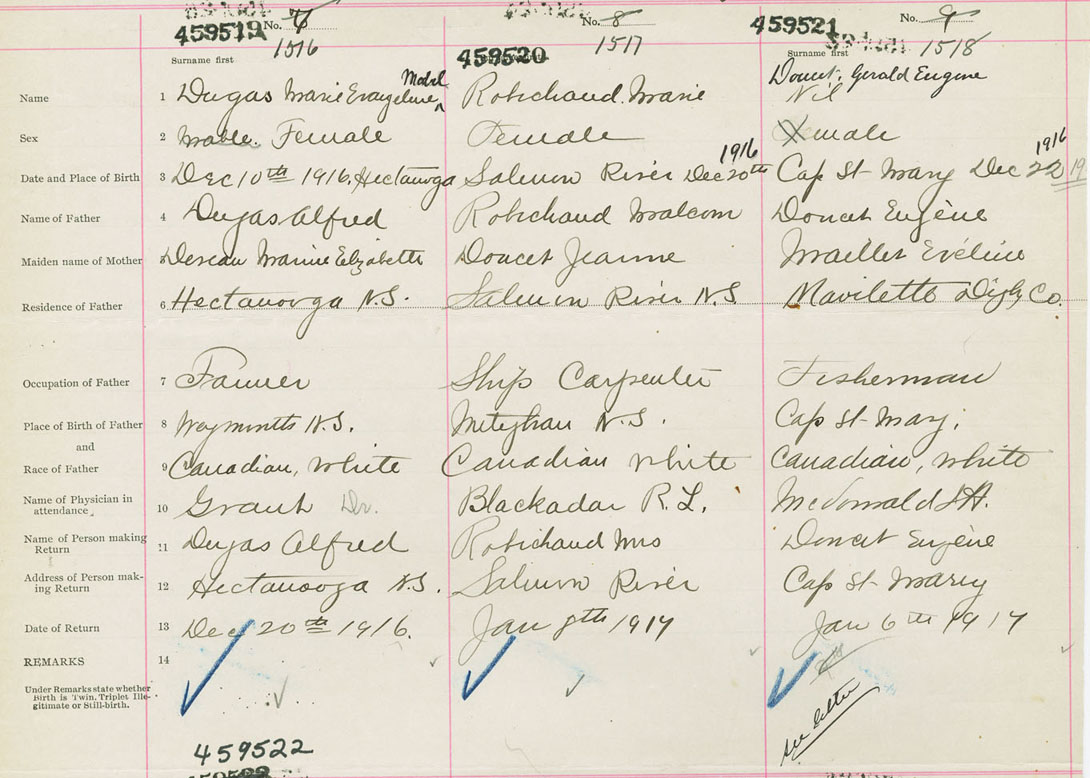 459519 No. 7
1516
459520 No. 8
1517
459521 No. 9
1518
Surname first
Surname first
Name 1 Dugas Marie Evangeline Mabel Robichaud Marie Doucet, Gerald Eugene
Nil
Sex 2 Mable. Female Female Female
1916 1916
Date and Place of Birth 3 Dec 10th 1916, Hectanooga Salmon River Dec 20th Cap St Mary Dec 22 19
Name of Father 4 Dugas Alfred Robichaud Malcom Doucet Eugène
Maiden name of Mother 5 Deveau Mannie Elizabeth Doucet Jeanne Maillet Evéline
Residence of Father 6 Hectanooga N.S. Salmon River N.S Mavilette Digby Co.
Occupation of Father 7 Farmer Ship Carpenter Fisherman
Place of Birth of Father 8 Weymouth N.S. Meteghan N.S. Cap St Mary,
and
Race of Father 9 Canadian, White Canadian White Canadian, White
Name of Physician in
attendance 10 Grant Dr. Blackadar R.L. McDonald
Name of Person making
Return 11 Dugas Alfred Robichaud Mrs Doucet Eugène
Address of Person mak-
ing Return 12 Hectanooga N.S. Salmon River Cap St Mary
Date of Return 13 Dec 20th 1916. Jan 8th 1917 Jan 6th 1917
REMARKS 14
Under Remarks state whether
Birth is Twin, Triplet Ille-
gitimate or Still-birth.
see letter
459522